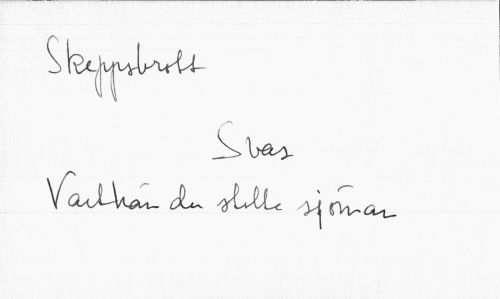 Skeppsbrott
Svar
Vart hän du stolte sjöman